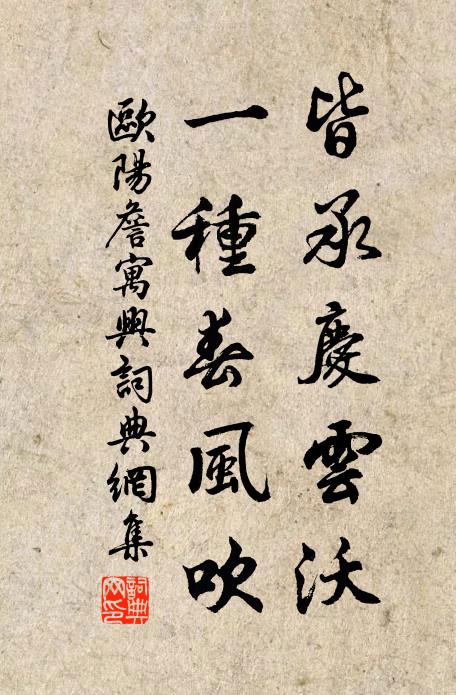 皆承慶雲沃
一種春風吹
歐陽詹寓興詞典網集